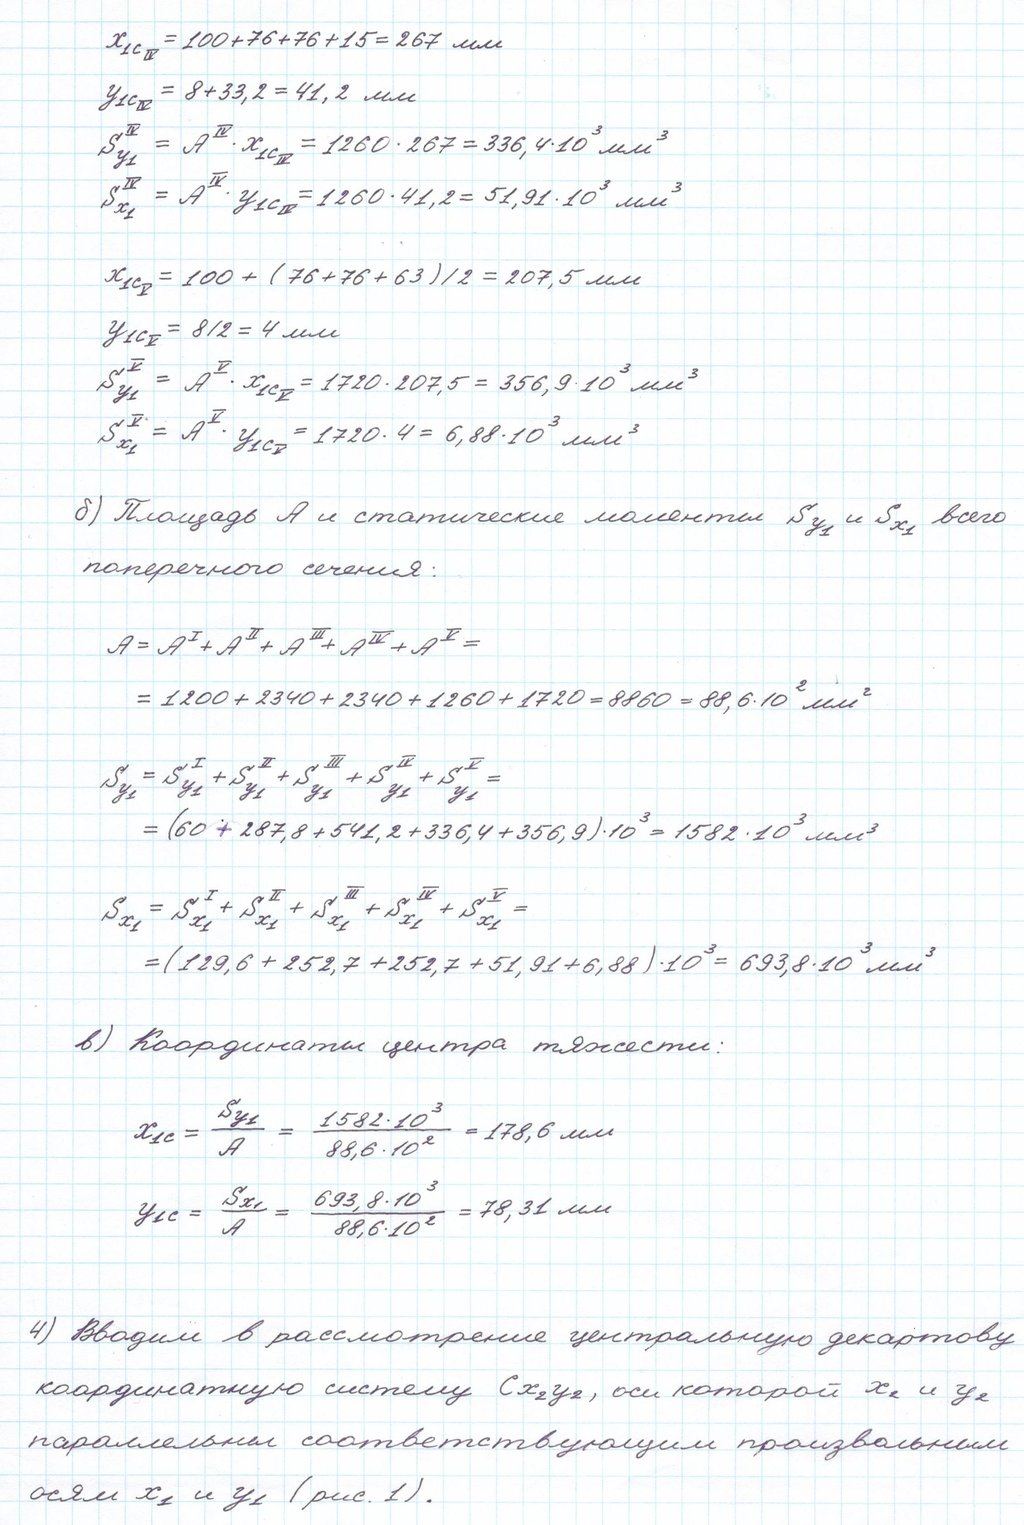 x₁cᵢᵥ = 100+76+76+15 = 267 мм
y₁cᵢᵥ = 8+33,2 = 41,2 мм
S_{y₁}^{IV} = A^{IV} · x₁c_{IV} = 1260 · 267 = 336,4·10³ мм³
S_{x₁}^{IV} = A^{IV} · y₁c_{IV} = 1260 · 41,2 = 51,91 · 10³ мм³
x₁c_V = 100 + (76+76+63)/2 = 207,5 мм
y₁c_V = 8/2 = 4 мм
S_{y₁}^{V} = A^{V} · x₁c_V = 1720 · 207,5 = 356,9·10³ мм³
S_{x₁}^{V} = A^{V} · y₁c_V = 1720 · 4 = 6,88·10³ мм³
б) Площадь A и статические моменты S_{y₁} и S_{x₁} всего
поперечного сечения:
A = A^{I} + A^{II} + A^{III} + A^{IV} + A^{V} =
= 1200+2340+2340+1260+1720 = 8860 = 88,6·10² мм²
S_{y₁} = S_{y₁}^{I} + S_{y₁}^{II} + S_{y₁}^{III} + S_{y₁}^{IV} + S_{y₁}^{V} =
= (60 + 287,8 + 541,2 + 336,4 + 356,9)·10³ = 1582·10³ мм³
S_{x₁} = S_{x₁}^{I} + S_{x₁}^{II} + S_{x₁}^{III} + S_{x₁}^{IV} + S_{x₁}^{V} =
= (129,6 + 252,7 + 252,7 + 51,91 + 6,88)·10³ = 693,8·10³ мм³
в) Координаты центра тяжести:
x₁c = S_{y₁}/A = 1582·10³/88,6·10² = 178,6 мм
y₁c = S_{x₁}/A = 693,8·10³/88,6·10² = 78,31 мм
4) Вводим в рассмотрение центральную декартову
координатную систему Cx₂y₂, оси которой x₂ и y₂
параллельны соответствующим произвольным
осям x₁ и y₁ (рис. 1).